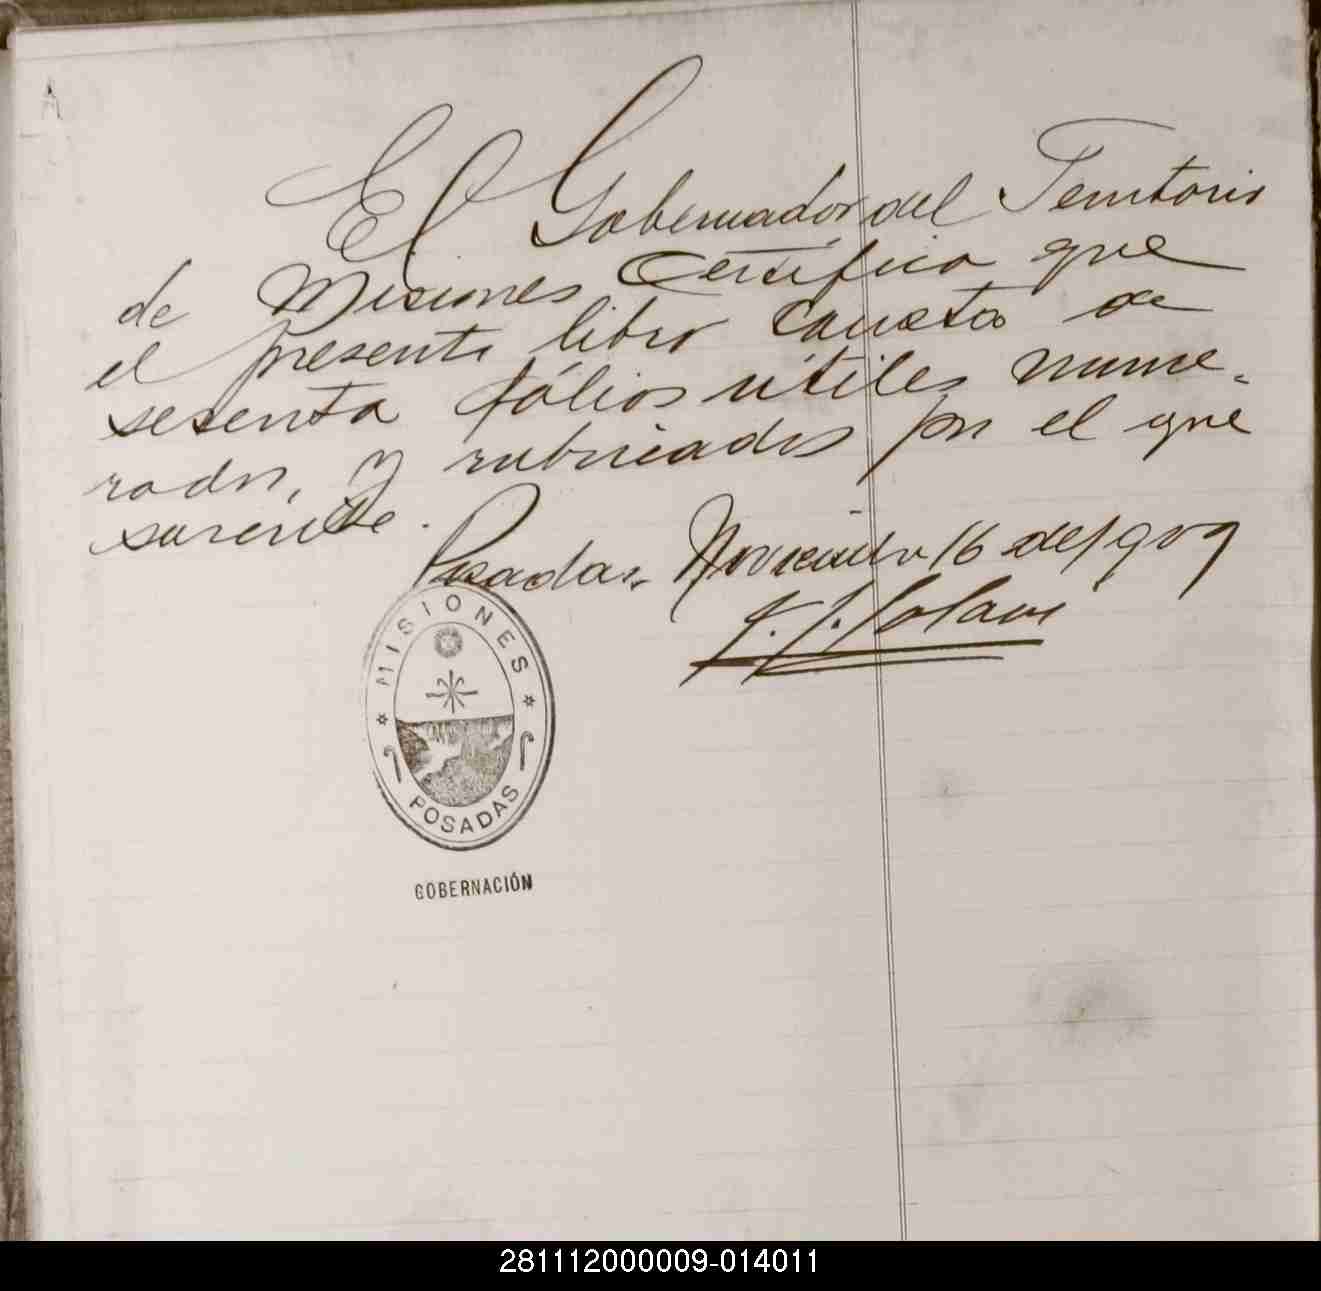 El Gobernador del Territorio
de Misiones Certifica que
el presente libro consta de
sesenta fólios útiles nume-
rados, y rubricados por el que
suscribe.
Posadas, Noviembre 16 de 1909
J. J. Lolano
MISIONES
POSADAS
GOBERNACIÓN
281112000009-014011